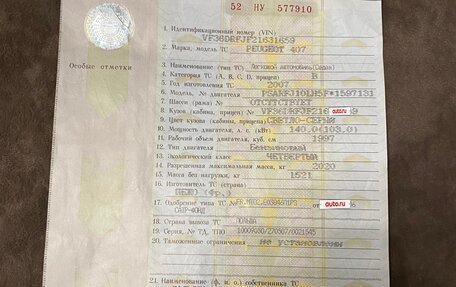 52 НУ 577910
1. Идентификационный номер (VIN) VF36DRFJF21631659
2. Марка, модель ТС PEUGEOT 407
Особые отметки
3. Наименование (тип ТС) Легковой автомобиль (Седан)
4. Категория ТС (A, B, C, D, прицеп) B
5. Год изготовления ТС 2007
6. Модель, № двигателя PSARFJ10LH5F*1597131
7. Шасси (рама) № ОТСУТСТВУЕТ
8. Кузов (кабина, прицеп) № auto.ru
9. Цвет кузова (кабины, прицепа) СВЕТЛО-СЕРЫЙ
10. Мощность двигателя, л. с. (кВт) 140.04(103.01)
11. Рабочий объем двигателя, куб. см 1997
12. Тип двигателя Бензиновый
13. Экологический класс ЧЕТВЕРТЫЙ
14. Разрешенная максимальная масса, кг 2020
15. Масса без нагрузки, кг 1521
16. Изготовитель ТС (страна)
ПЕЖО (Фр.)
17. Одобрение типа ТС № от auto.ru
18. Страна вывоза ТС ПОЛЬША
19. Серия, № ТД, ТПО 10009030/270307/0021545
20. Таможенные ограничения не установлены
21. Наименование (ф. и. о.) собственника ТС